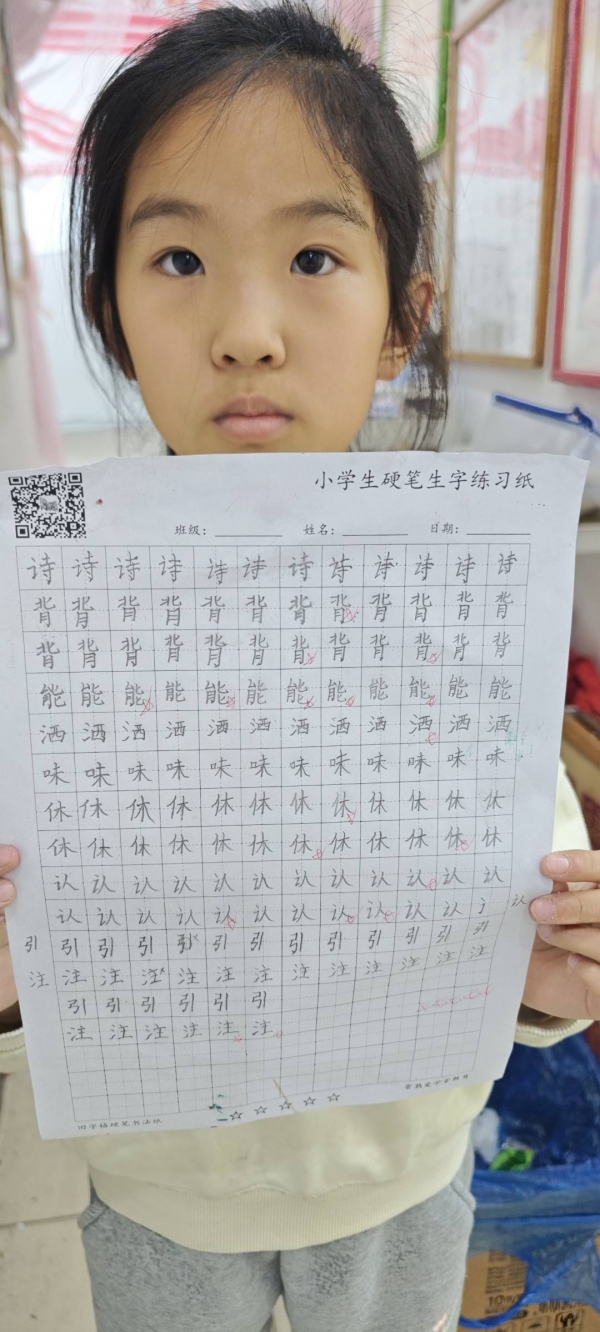 小学生硬笔生字练习纸
班级： 姓名： 日期：
诗 诗 诗 诗 诗 诗 诗 诗 诗 诗 诗 诗
背 背 背 背 背 背 背 背 背 背 背 背
背 背 背 背 背 背 背 背 背 背 背 背
能 能 能 能 能 能 能 能 能 能 能 能
洒 洒 洒 洒 洒 洒 洒 洒 洒 洒 洒 洒
味 味 味 味 味 味 味 味 味 味 味 味
休 休 休 休 休 休 休 休 休 休 休 休
休 休 休 休 休 休 休 休 休 休 休 休
认 认 认 认 认 认 认 认 认 认 认 认
认 认 认 认 认 认 认 认 认 认 认 讠 认
引 引 引 引 引 引 引 引 引 引 引 引 引
注 注 注 注 注 注 注 注 注 注 注 注 注
引 引 引 引 引 引
注 注 注 注 注 注
田字格硬笔书法纸